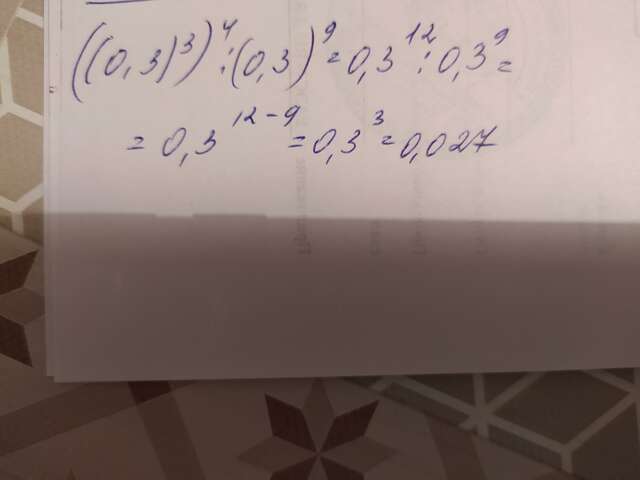 ((0,3)³)⁴ : (0,3)⁹ = 0,3¹² : 0,3⁹ =
= 0,3¹²⁻⁹ = 0,3³ = 0,027